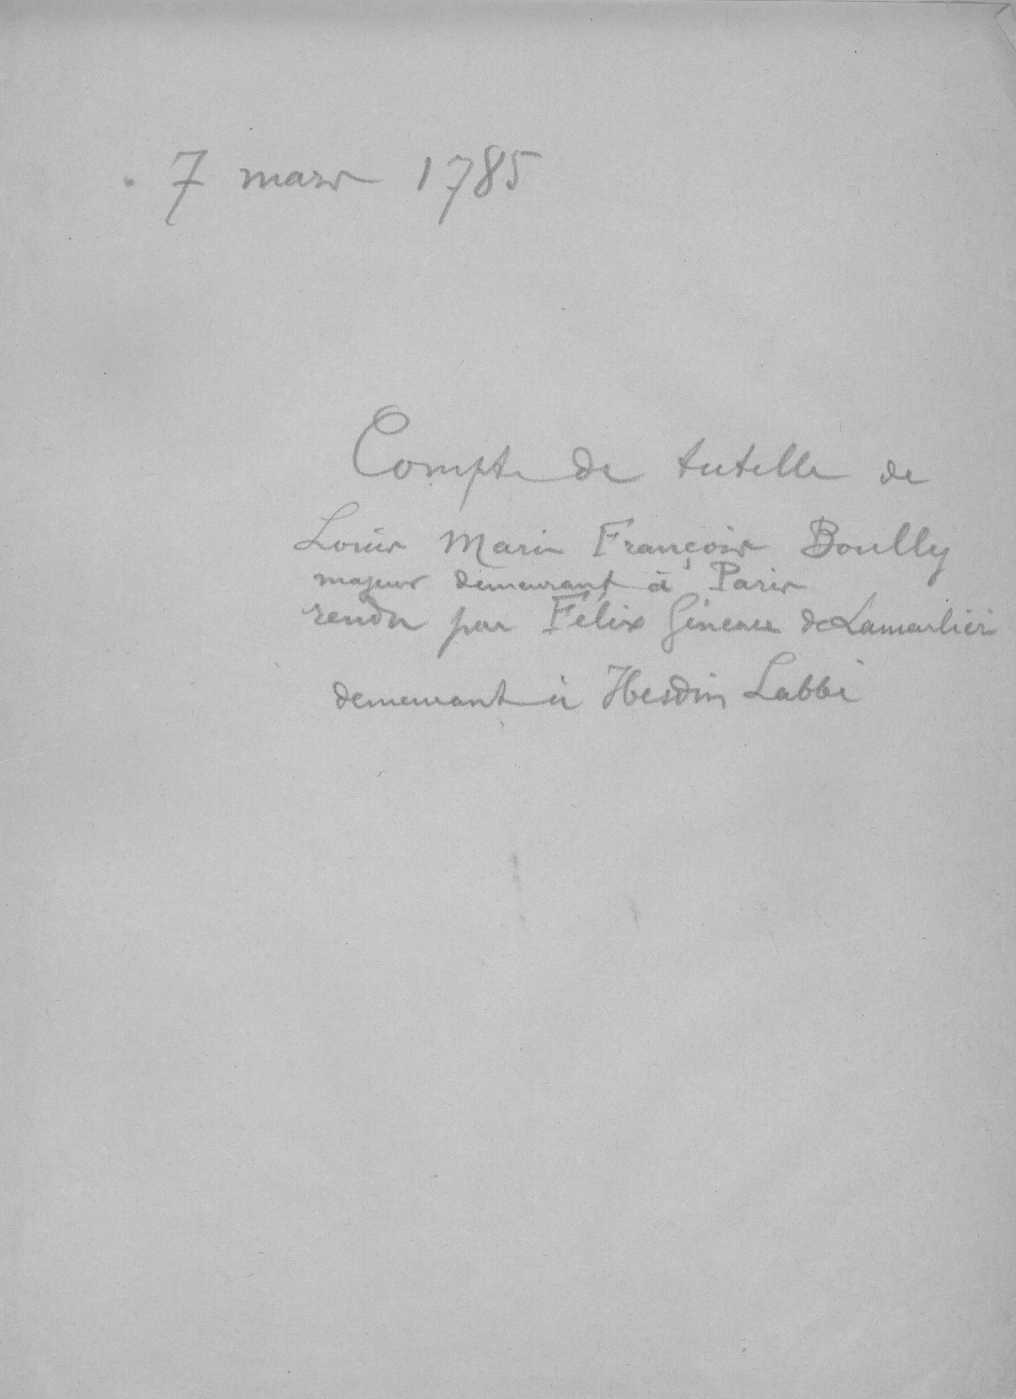 7 mars 1785
Compte de tutelle de
Louis Marie François Boully
majeur demeurant à Paris
rendu par Félix Géneau de Lamarlière
demeurant à Hesdin Labbé